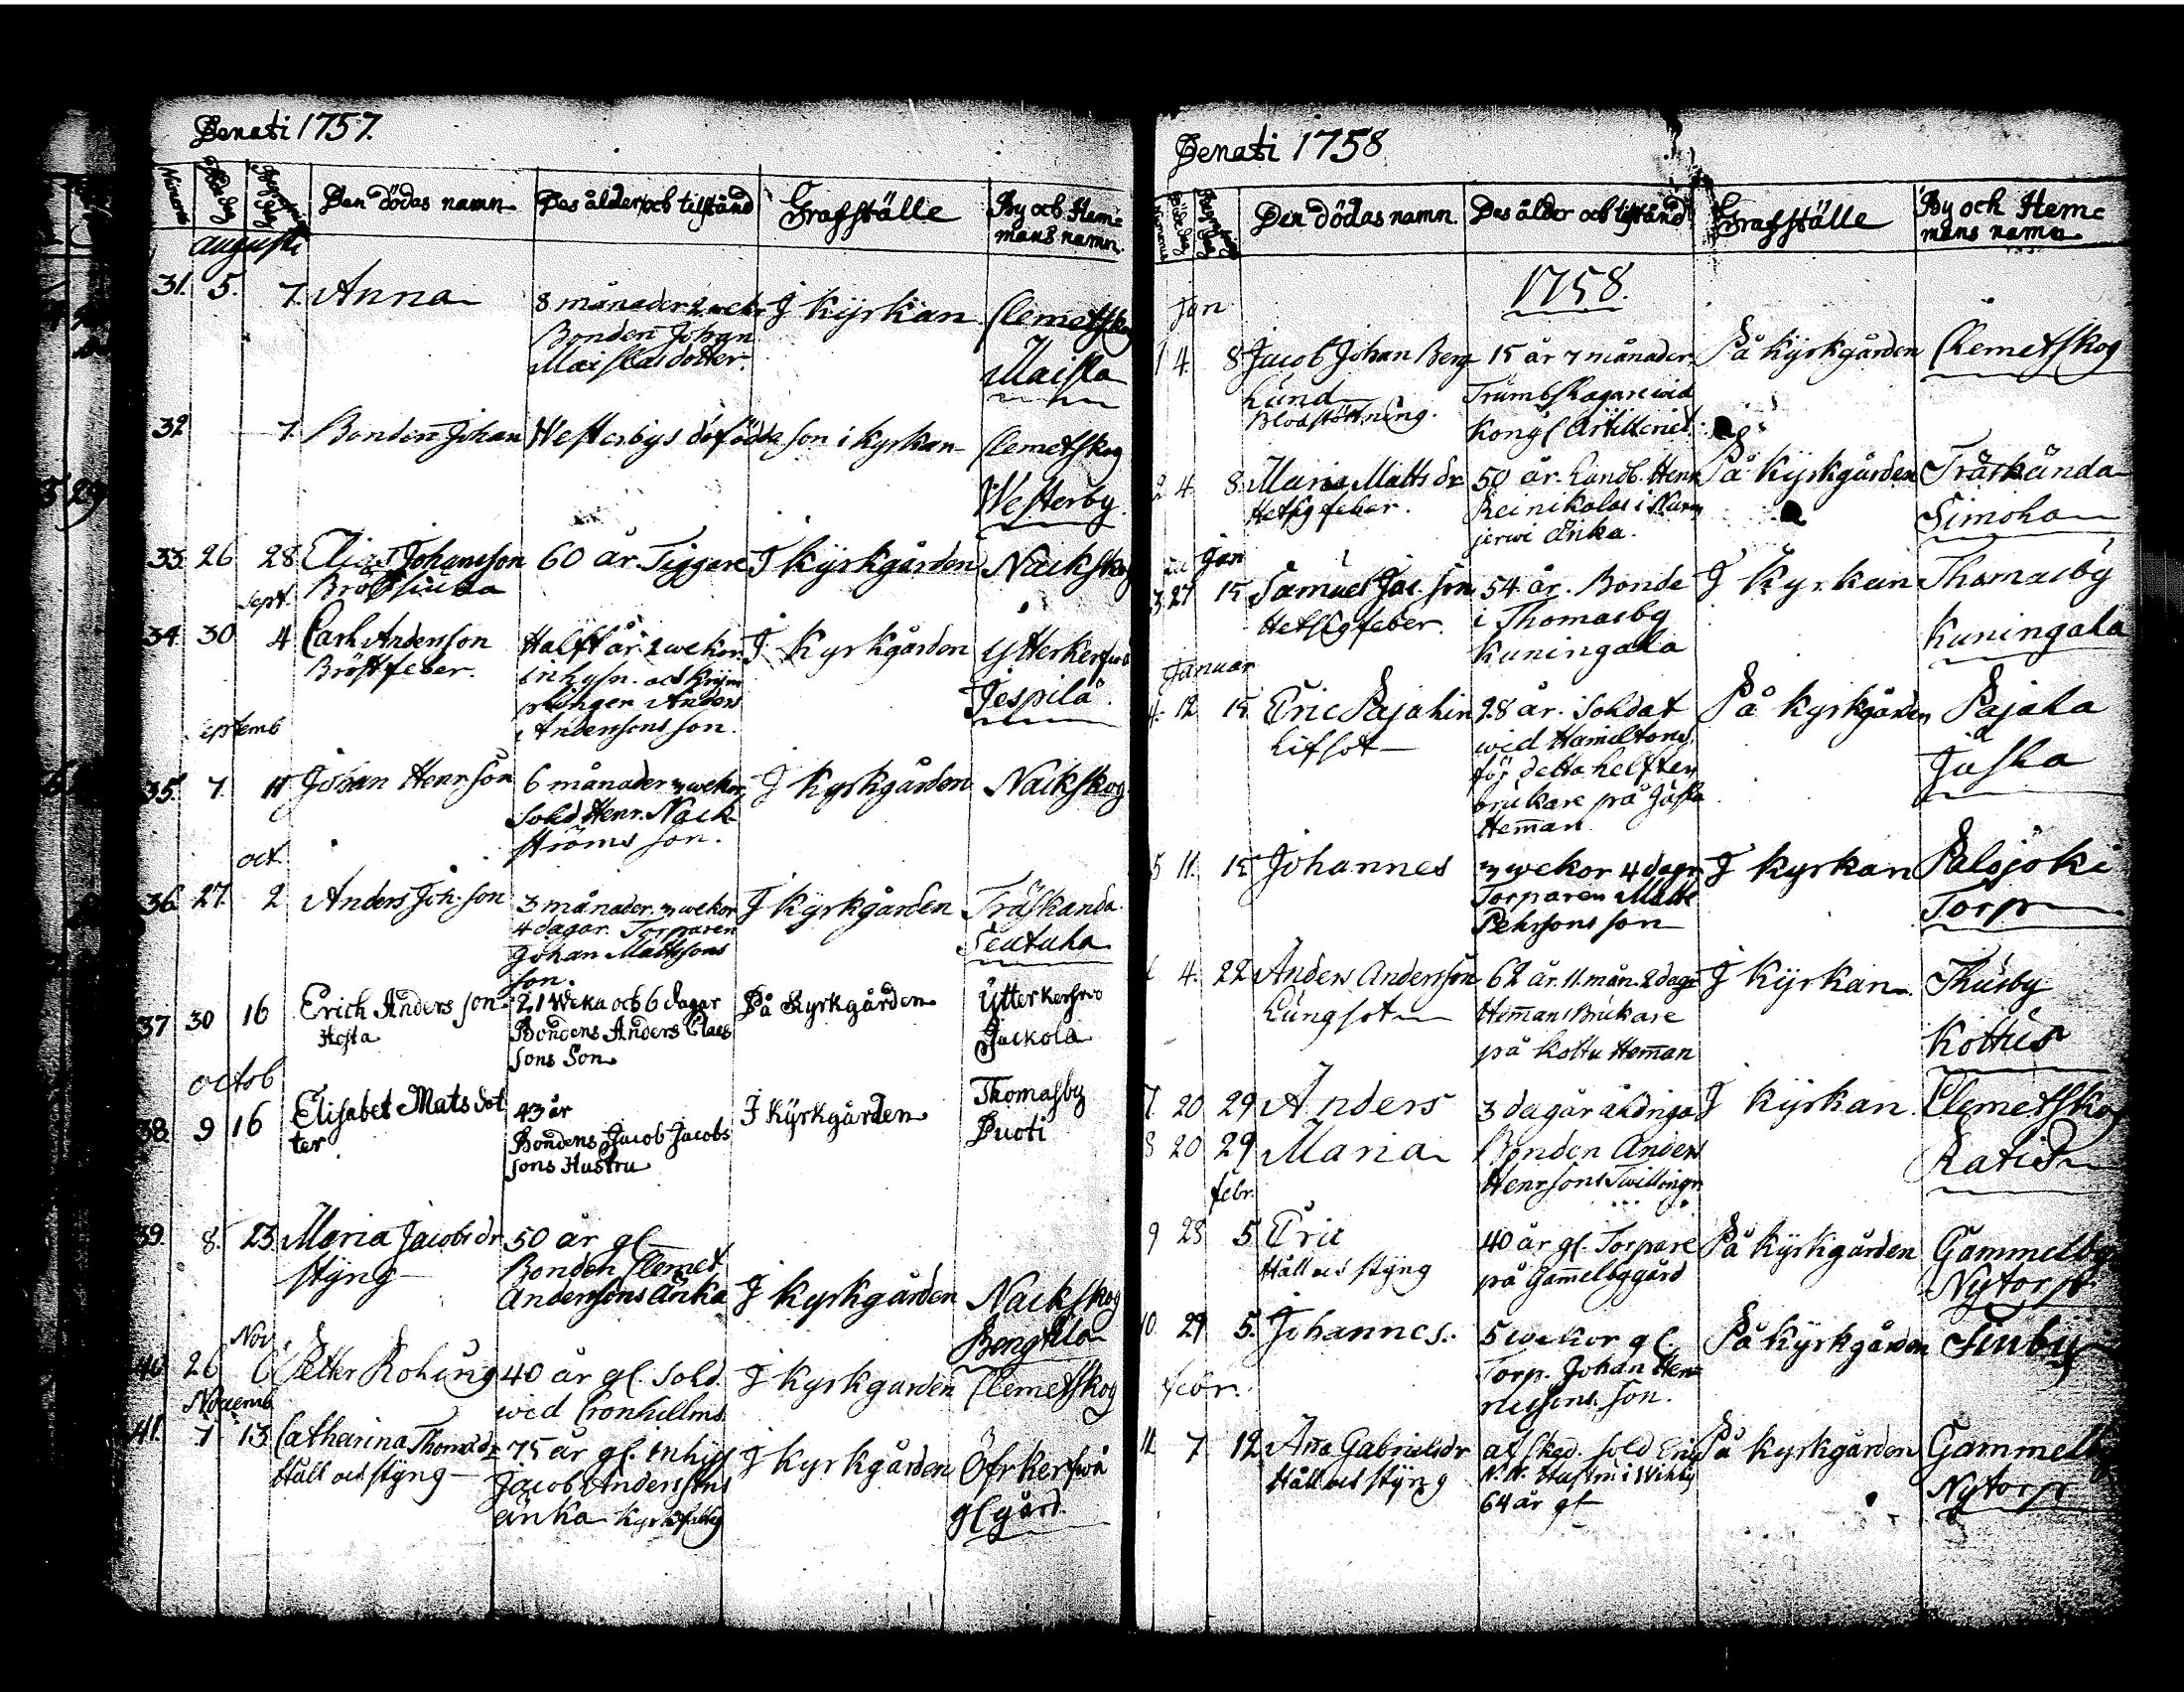 Denati 1757.
Numerus Döda dag Begrafn. dag Den dödas namn Des ålder och tilstånd Grafställe By och Hem=
mans namn.
augusti
31. 5. 7. Anna 8 månader 2 wek. J kyrkan Clemetskog
Bonden Johan
Maislas dotter. Maisla
32. 7. Bonden Johan Westerbys döfödda son i kyrkan Clemetskog
Westerby
33. 26 28 Elias Johansson 60 år Tiggare J kyrkgården Nackskog
Bröstsiuka
sept.
34. 30 4 Carl Anderson Halft år 2 wekor. J kyrkgården Ytterkerswå
Bröstfeber. inhysn. och krym Jespilä
plingen Anders
Andersons son.
septemb
35. 7. 11 Johan Henr son 6 månader 3 wekor J kyrkgården Nackskog
Sold Henr. Nack
ströms son.
oct.
36. 27. 2 Anders Joh. son 3 månader 3 wekor J kyrkgården Träskanda
4 dagar. Torparen Seutula
Johan Mattssons
son.
37 30 16 Erich Anders son 21 Weka och 6 dagar På Kyrkgården Ytterkerswo
Hosta Bondens Anders Claes Jackola
sons Son
octob
38. 9 16 Elisabet Mats dot 43 år J Kyrkgården Thomasby
ter Bondens Jacob Jacobs Puoti
sons Hustru
39. 8. 23 Maria Jacobs dr 50 år gl
styng Bonden Clemet
Andersons Änka J kyrkgården Nackskog
Bengtila
Nov.
40 26 6 Petter Roling 40 år gl. Sold. J kyrkgården Clemetskog
wid Cronhellms
Novemb
41. 7 13 Catharina Thoms dr 75 år gl. inhys J kyrkgården Öfrkerswå
Håll och styng Jacob Andersons glgård
änka
Denati 1758
Numerus Döda dag Begrafn. dag Den dödas namn. Des ålder och tilstånd Grafställe By och Hem=
mans namn
1758.
Jan
1 4. 8 Jacob Johan Berg 15 år 7 månader På kyrkgården Clemetskog
lund Trumbslagare wid
Blodstörtning. Kongl Artilleriet.
2 4. 8. Maria Matts dr 50 år. Landb. Henr På kyrkgården Träskända
Hetsig feber. Reinikalas i Simola
jerwi änka.
Jan
3. 27 15 Samuel Jac. son 54 år. Bonde J Kyrkan Thomasby
Hetsig feber. i Thomasby Kuningala
Kuningala
Januar
4. 12 15 Eric Pajalin 28 år. Soldat På kyrkgården Pajala
Lifsot wid Hamiltons Jusla
för detta helften
brukare på Jusla
Heman
5 11. 15 Johannes 3 wekor 4 dagr J kyrkan Palojoki
Torparen Matts Torp
Pehrsons son
6 4. 22 Anders Anderson 62 år. 11. mån. 2 dagr J kyrkan Thusby
Lungsot Hemans Brukare Kottus
på Kottu Heman
7 20 29 Anders 3 dagar äldriga J kyrkan Clemetskog
8 20 29 Maria Bonden Anders Ratis
Henrsons Twillingr
febr.
9 28 5 Eric 40 år gl. Torpare På kyrkgården Gammelby
Håll och styng på Gamelbygård Nytorp
10. 29 5. Johannes. 5 wekor gl På kyrkgården Tusby
Torp. Johan Hen
ricsons son.
febr.
11 7. 12 Aña Gabriels dr afsked. sold Eric På kyrkgården Gammelby
Håll och styng N.N. Hustru i Nytorp
64 år gl